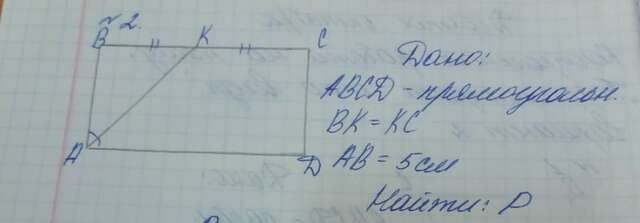 №2.
B K C
A D
Дано:
ABCD - прямоугольн.
BK = KC
AB = 5 см
Найти: P